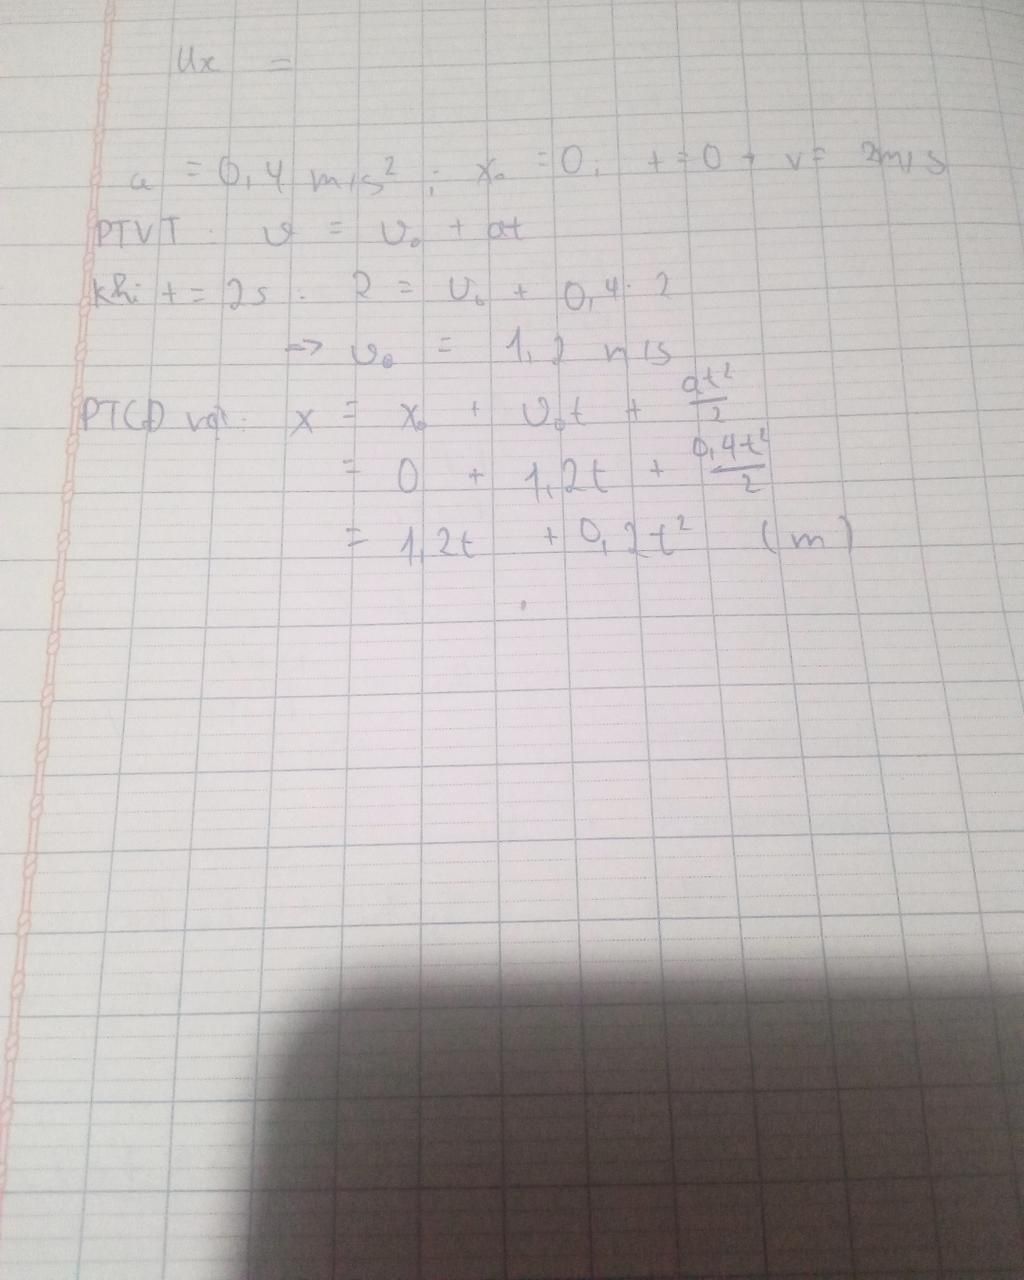 Ux =
a = 0,4 m/s² ; x₀ = 0; t = 0 + v = 2m/s
PTVT : v = v₀ + at
khi t = 2s : 2 = v₀ + 0,4.2
=> v₀ = 1,2 m/s
PTCĐ vật: x = x₀ + v₀t + at²/2
= 0 + 1,2t + 0,4t²/2
= 1,2t + 0,2t² (m)